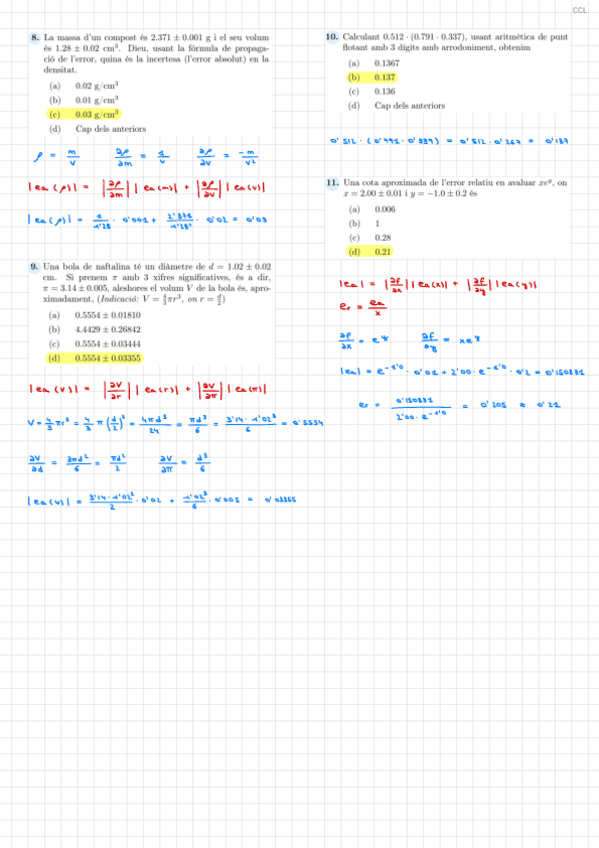 CCL
8. La massa d'un compost és 2.371 ± 0.001 g i el seu volum
és 1.28 ± 0.02 cm³. Dieu, usant la fórmula de propaga-
ció de l'error, quina és la incertesa (l'error absolut) en la
densitat.
(a) 0.02 g/cm³
(b) 0.01 g/cm³
(c) 0.03 g/cm³
(d) Cap dels anteriors
ρ = m/v ∂ρ/∂m = 1/v ∂ρ/∂v = -m/v²
|ea(ρ)| = |∂ρ/∂m| |ea(m)| + |∂ρ/∂v| |ea(v)|
|ea(ρ)| = 1/1'28 · 0'001 + 2'371/1'28² · 0'02 = 0'03
9. Una bola de naftalina té un diàmetre de d = 1.02 ± 0.02
cm. Si prenem π amb 3 xifres significatives, és a dir,
π = 3.14 ± 0.005, aleshores el volum V de la bola és, apro-
ximadament, (Indicació: V = 4/3 πr³, on r = d/2)
(a) 0.5554 ± 0.01810
(b) 4.4429 ± 0.26842
(c) 0.5554 ± 0.03444
(d) 0.5554 ± 0.03355
|ea(v)| = |∂V/∂r| |ea(r)| + |∂V/∂π| |ea(π)|
V = 4/3 πr³ = 4/3 π (d/2)³ = 4πd³/24 = πd³/6 = 3'14·1'02³/6 = 0'5554
∂V/∂d = 3πd²/6 = πd²/2 ∂V/∂π = d³/6
|ea(v)| = 3'14·1'02²/2 · 0'02 + 1'02³/6 · 0'005 = 0'03355
10. Calculant 0.512 · (0.791 · 0.337), usant aritmètica de punt
flotant amb 3 dígits amb arrodoniment, obtenim
(a) 0.1367
(b) 0.137
(c) 0.136
(d) Cap dels anteriors
0'512 · (0'791 · 0'337) = 0'512 · 0'267 = 0'137
11. Una cota aproximada de l'error relatiu en avaluar xeʸ, on
x = 2.00 ± 0.01 i y = −1.0 ± 0.2 és
(a) 0.006
(b) 1
(c) 0.28
(d) 0.21
|ea| = |∂f/∂x| |ea(x)| + |∂f/∂y| |ea(y)|
er = ea/x
∂f/∂x = eʸ ∂f/∂y = xeʸ
|ea| = e^-1'0 · 0'01 + 2'00 · e^-1'0 · 0'2 = 0'150831
er = 0'150831/2'00·e^-1'0 = 0'205 ≈ 0'21